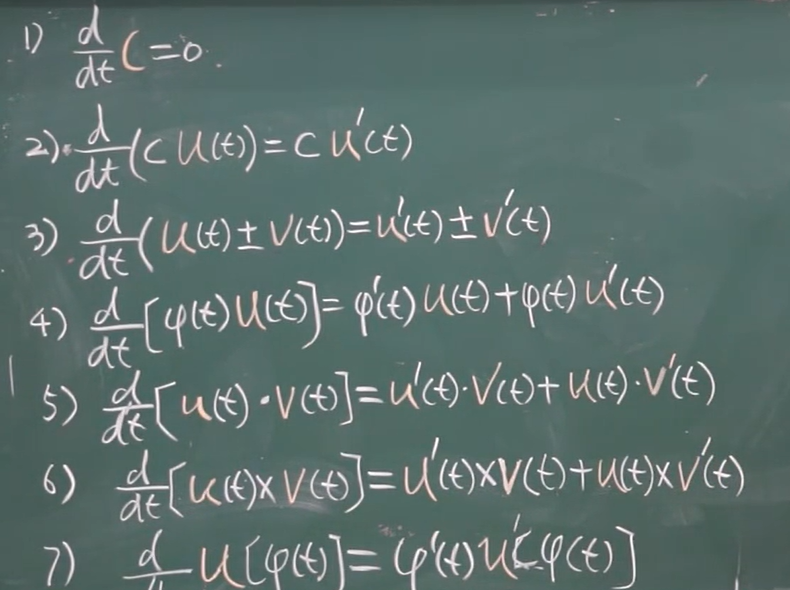 1) d/dt C = 0.
2) d/dt (C u(t)) = C u'(t)
3) d/dt (u(t) ± v(t)) = u'(t) ± v'(t)
4) d/dt [φ(t) u(t)] = φ'(t) u(t) + φ(t) u'(t)
5) d/dt [u(t) · v(t)] = u'(t) · v(t) + u(t) · v'(t)
6) d/dt [u(t) × v(t)] = u'(t) × v(t) + u(t) × v'(t)
7) d/dt u[φ(t)] = φ'(t) u'[φ(t)]